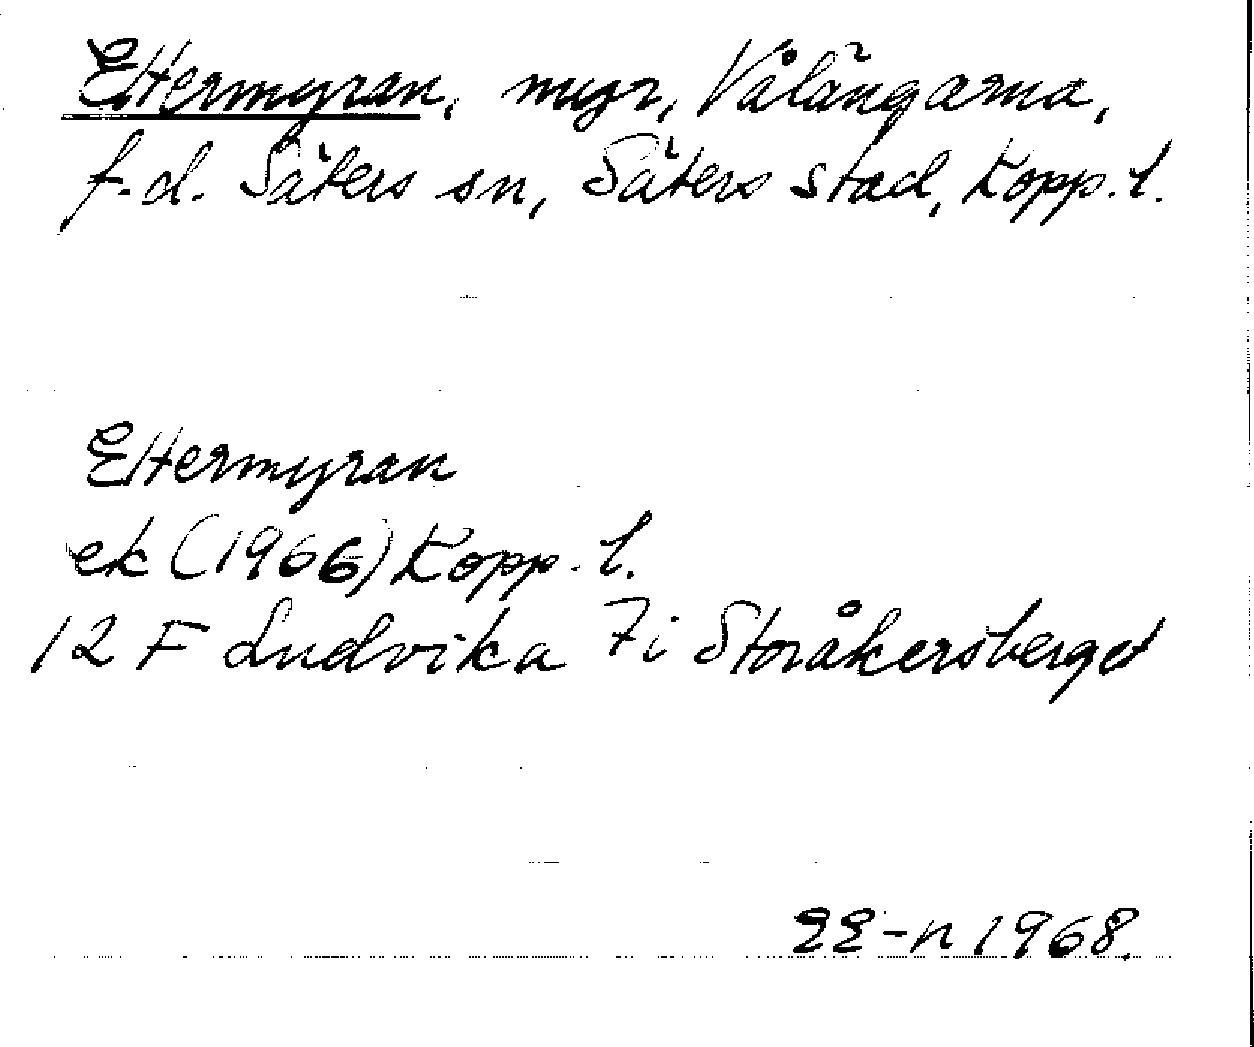 Ettermyran, myr, Vålängarna,
f.d. Säters sn, Säters stad, Kopp. l.
Ettermyran
ek (1966) Kopp. l.
12 F Ludvika 7i Storåkersberget
EE-n 1968.